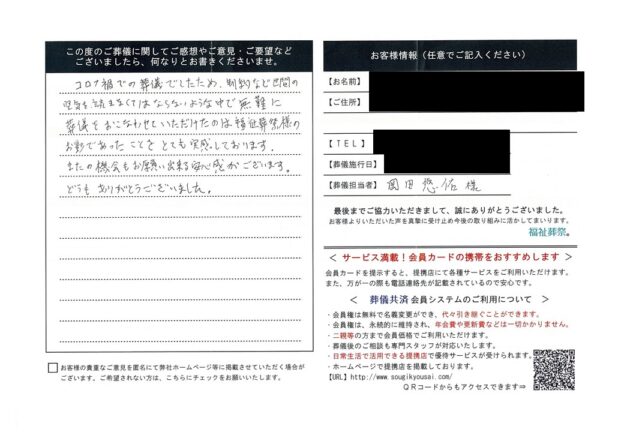 この度のご葬儀に関してご感想やご意見・ご要望など
ございましたら、何なりとお書きくださいませ。
コロナ禍での葬儀でしたため、制約など世間の
空気を読まなくてはならないような中で無難に
葬儀をおこなわせていただけたのは福祉葬祭様の
お影であったことをとても実感しております。
またの機会もお願い出来る安心感がございます。
どうもありがとうございました。
お客様の貴重なご意見を匿名にて弊社ホームページ等に掲載させていただく場合が
ございます。ご希望されない方は、こちらにチェックをお願いいたします。
お客様情報（任意でご記入ください）
【お名前】
【ご住所】
【ＴＥＬ】
【葬儀施行日】
【葬儀担当者】 園田悠佑様
最後までご協力いただきまして、誠にありがとうございました。
お客様よりいただいた声を真摯に受け止め今後の取り組みに活かしてまいります。
福祉葬祭。
＜ サービス満載！会員カードの携帯をおすすめします ＞
会員カードを提示すると、提携店にて各種サービスをご利用いただけます。
また、万が一の際も電話連絡先が記載されているので安心です。
＜ 葬儀共済 会員システムのご利用について ＞
・会員権は無料で名義変更ができ、代々引き継ぐことができます。
・会員権は、永続的に維持され、年会費や更新費などは一切かかりません。
・二親等の方まで会員価格でご利用いただけます。
・葬儀後のご相談も専門スタッフが対応いたします。
・日常生活で活用できる提携店で優待サービスが受けられます。
・ホームページで提携店を掲載しております。
【URL】http://www.sougikyousai.com/
ＱＲコードからもアクセスできます⇒